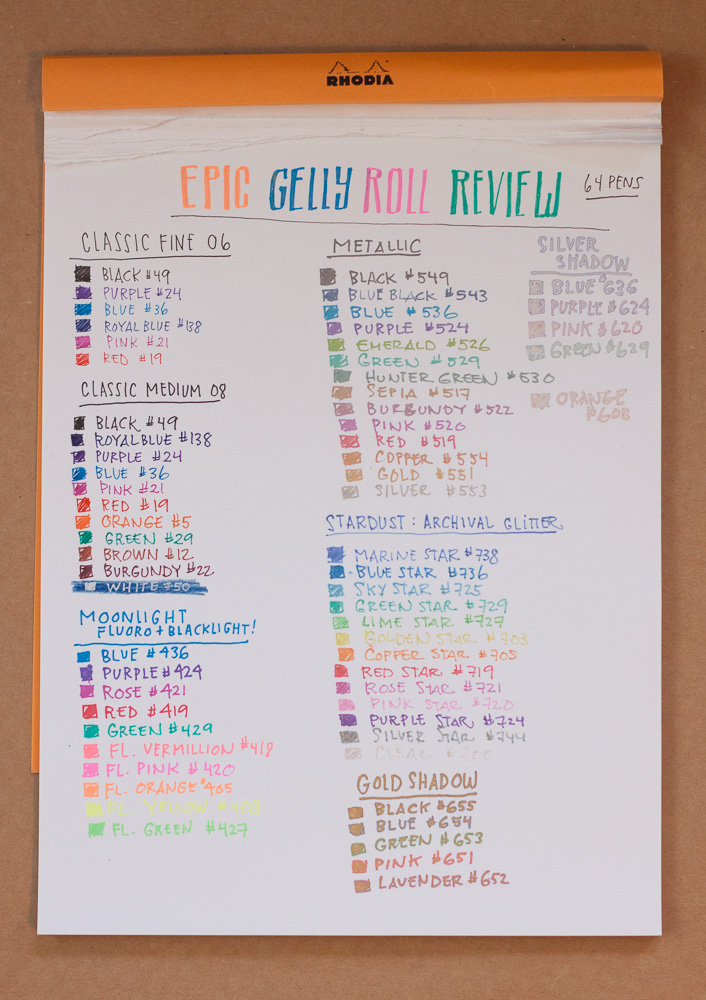 RHODIA
EPIC GELLY ROLL REVIEW 64 PENS
CLASSIC FINE 06
BLACK #49
PURPLE #24
BLUE #36
ROYAL BLUE #138
PINK #21
RED #19
CLASSIC MEDIUM 08
BLACK #49
ROYAL BLUE #138
PURPLE #24
BLUE #36
PINK #21
RED #19
ORANGE #5
GREEN #29
BROWN #12
BURGUNDY #22
WHITE #50
MOONLIGHT
FLUORO + BLACKLIGHT!
BLUE #436
PURPLE #424
ROSE #421
RED #419
GREEN #429
FL. VERMILLION #418
FL. PINK #420
FL. ORANGE #405
FL. YELLOW #403
FL. GREEN #427
METALLIC
BLACK #549
BLUE BLACK #543
BLUE #536
PURPLE #524
EMERALD #526
GREEN #529
HUNTER GREEN #530
SEPIA #517
BURGUNDY #522
PINK #520
RED #519
COPPER #554
GOLD #551
SILVER #553
STARDUST: ARCHIVAL GLITTER
MARINE STAR #738
BLUE STAR #736
SKY STAR #725
GREEN STAR #729
LIME STAR #727
GOLDEN STAR #703
COPPER STAR #705
RED STAR #719
ROSE STAR #721
PINK STAR #720
PURPLE STAR #724
SILVER STAR #744
CLEAR #700
GOLD SHADOW
BLACK #655
BLUE #654
GREEN #653
PINK #651
LAVENDER #652
SILVER
SHADOW
BLUE #636
PURPLE #624
PINK #620
GREEN #629
ORANGE
#608